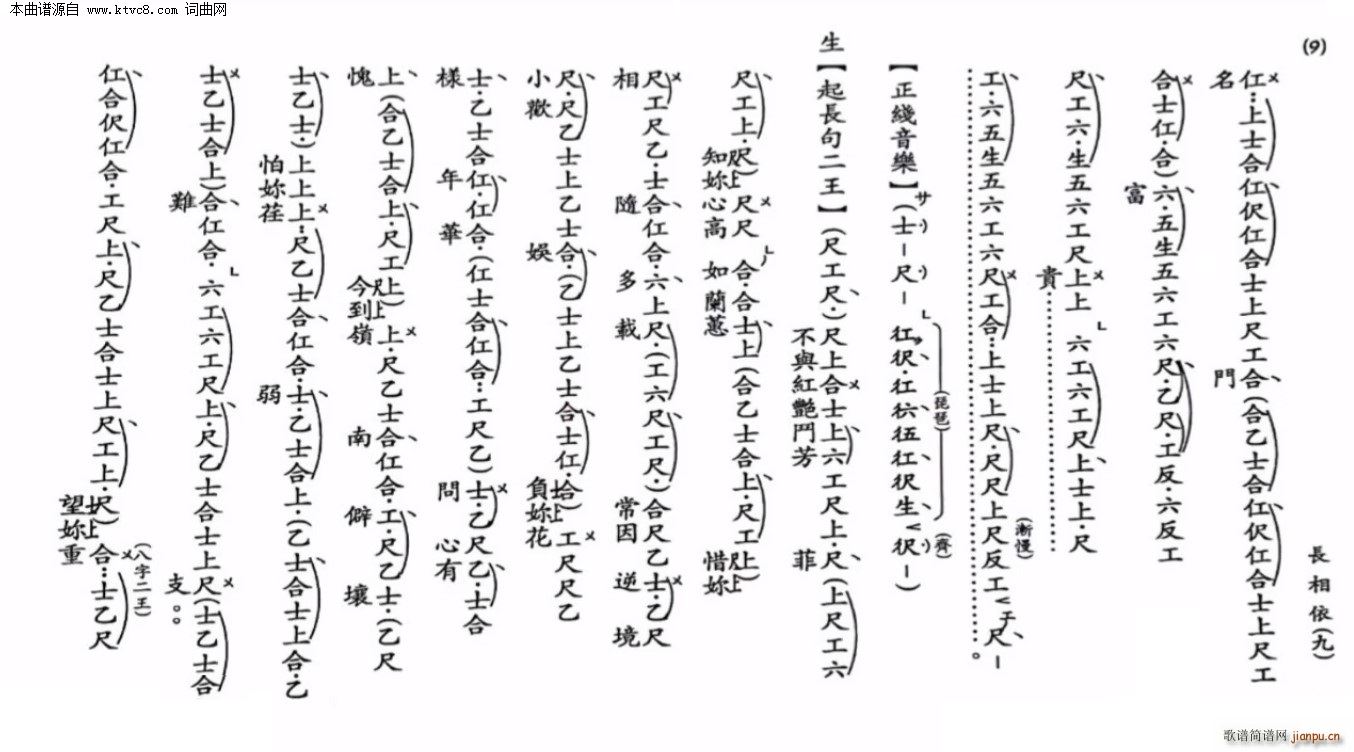 本曲谱源自 www.ktvc8.com 词曲网
(9)
長相依(九)
仜:上士合仜伬仜合士上尺工合(合乙士合仜伬仜合士上尺工
名 門
合士仜·合)六·五生五六工六尺·乙尺·工反·六反工
富
尺工六·生五六工尺上上 六工六工尺上士上·尺
貴
工·六五生五六工六尺工合·上士上尺·尺尺上尺反工 尺、—
(漸慢)
【正綫音樂】(士—尺— 生 —)
(琵琶) (齊)
生【起長句二王】(尺工尺·)尺上合士上六工尺上·尺(上尺工六
不與紅艷鬥芳 菲
尺工上·尺)尺尺 合·合士上(合乙士合上·尺工上)
知妳心高 如蘭蕙 惜妳
尺工尺乙·士合仜合·六上尺·(工六尺工尺·)合尺乙士·乙尺
相 隨 多 載 常因 逆 境
尺·尺乙士上乙士合·(乙士上乙士合士仜·合)工尺尺乙
小歡 娛 負妳花
士·乙士合仜·仜合·(仜士合仜合:工尺乙)士·乙尺乙·士合
樣 年 華 問 心有
上(合乙士合上·尺工上)上·尺乙士合仜合·工·尺乙士·(乙尺
愧 今到嶺 南 僻 壞
士乙士·)上上上:尺乙士合仜合·士·乙士合上·(乙士合士上合·乙
怕妳荏 弱
士乙士合上)合仜合·六工六工尺上·尺乙士合士上尺(士乙士合
難 支。。
仜合伬仜合·工尺上·尺乙士合士上尺工上·尺)合:士乙尺
望妳重
(八字二王)
歌谱简谱网 jianpu.cn